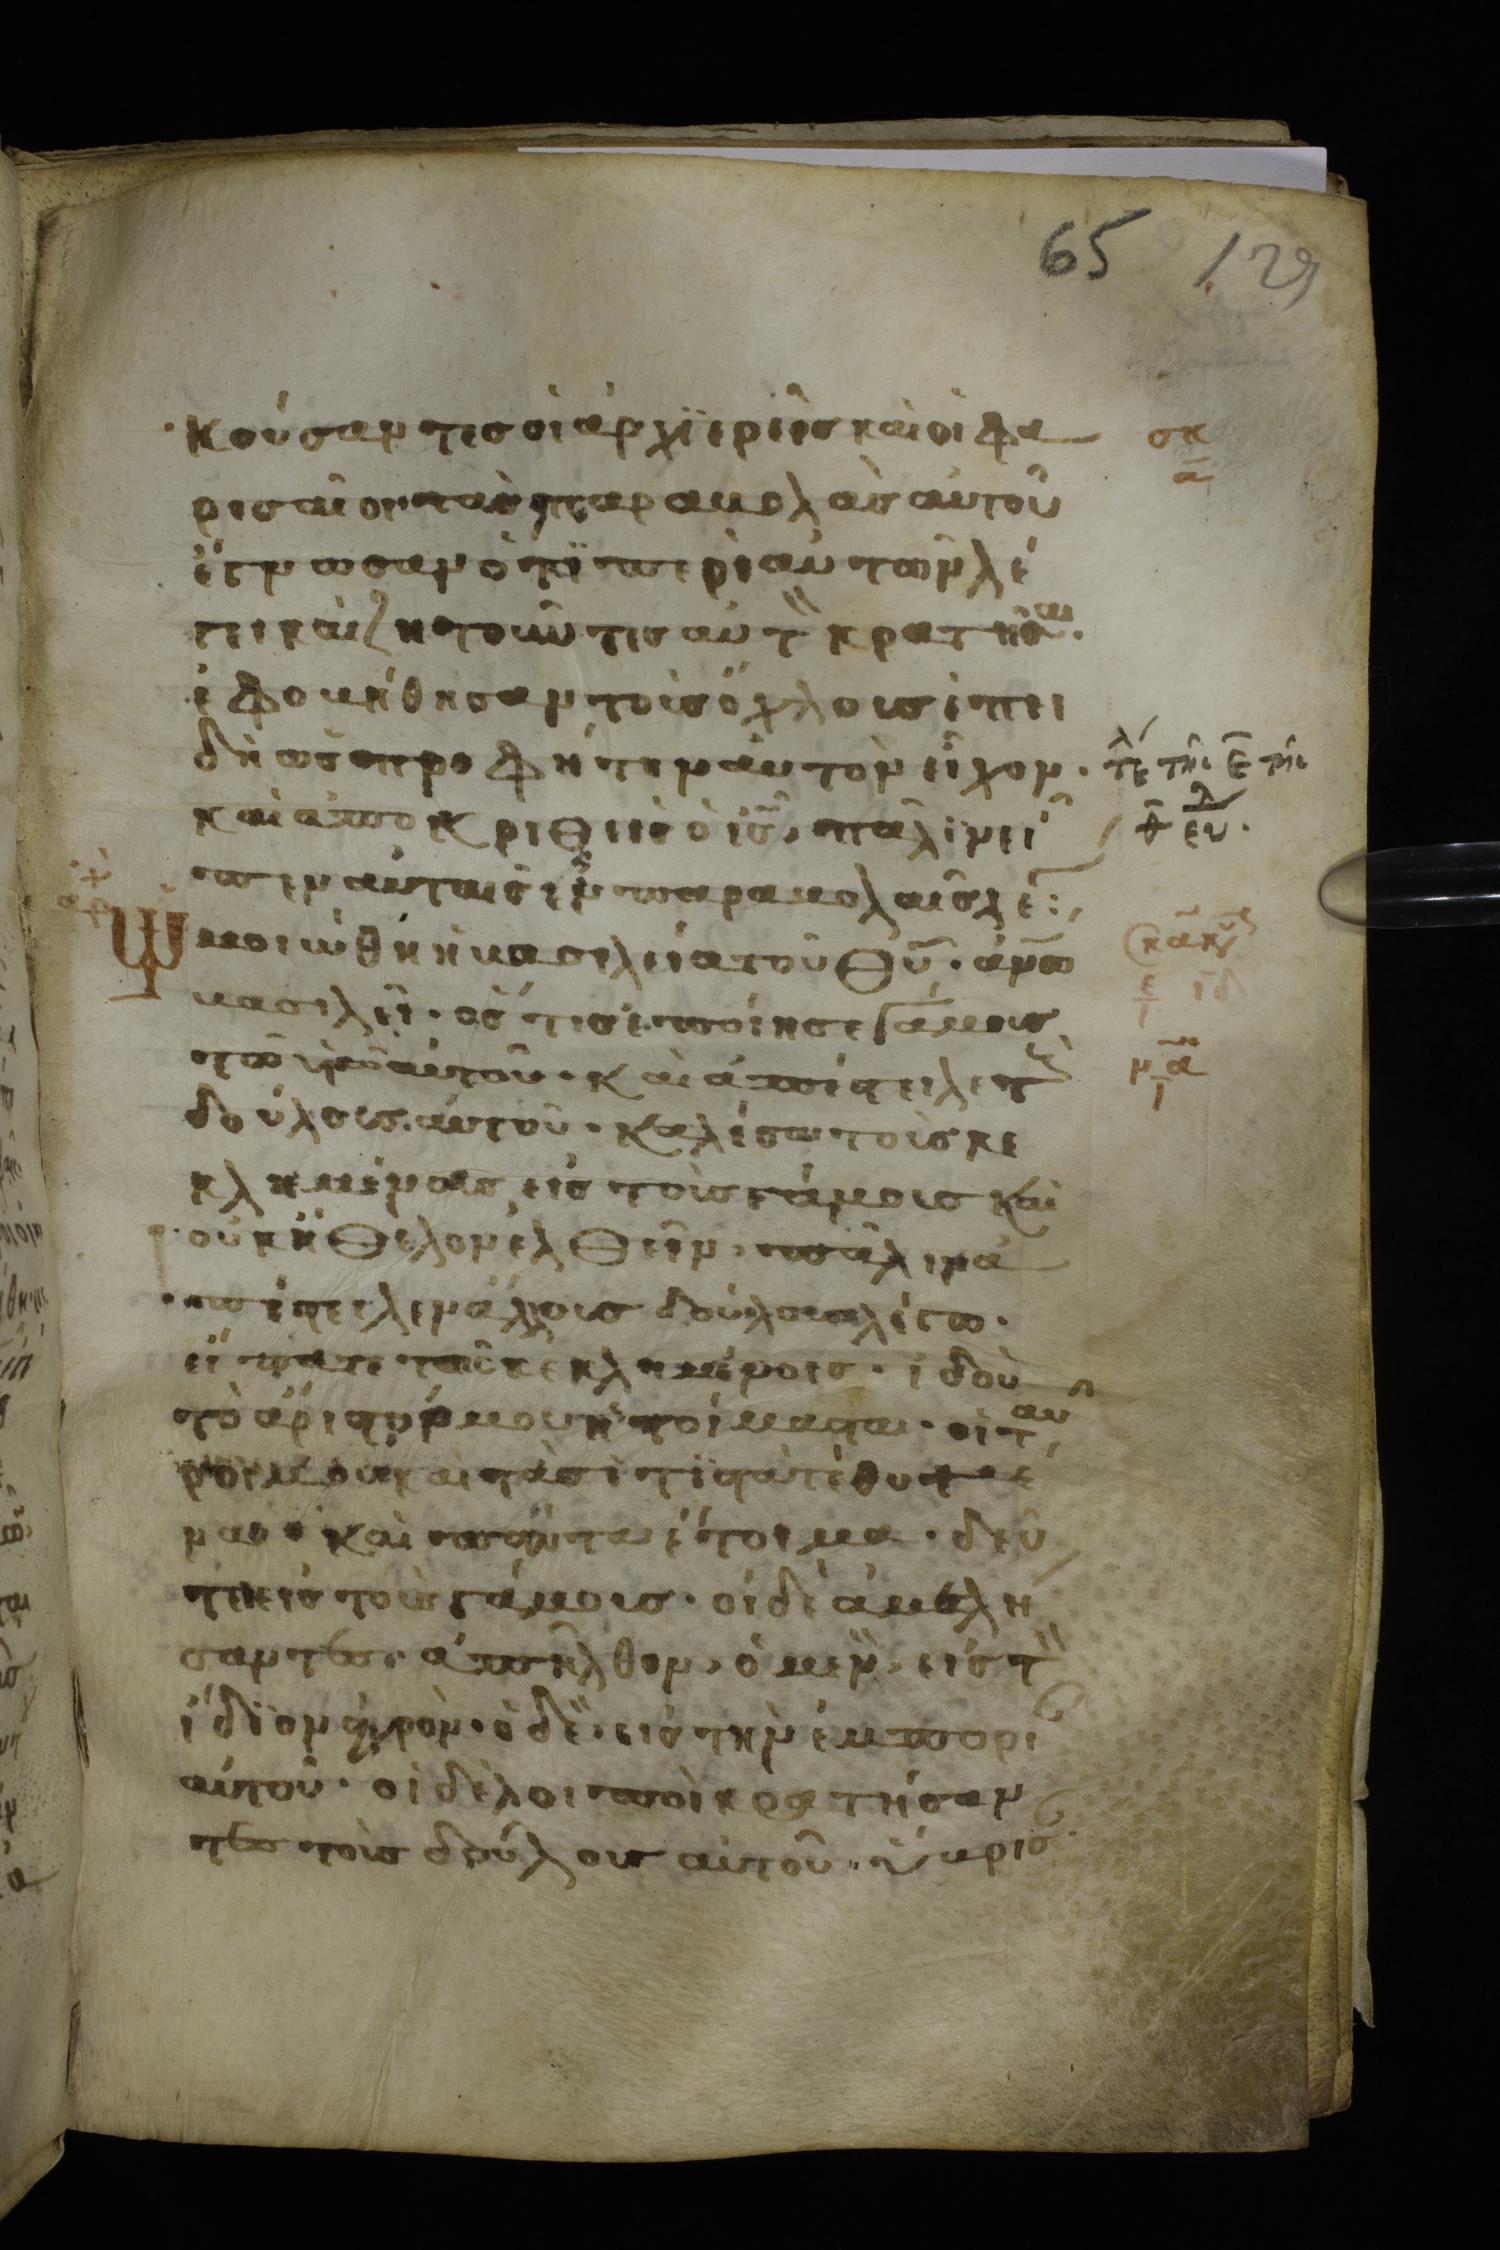 65 129
κούσαντες οἱ ἀρχϊερεῖς καὶ οἱ φα
ρισαῖοι τὰς παραβολὰς αὐτοῦ
ἔγνωσαν ὅτϊ περὶ αὐτῶν λέ
γει καὶ ζητοῦντες αὐτ κρατῆσαι.
ἐφοβήθησαν τοὺς ὄχλους ἐπει
δὴ ὡς προφήτην αὐτὸν εἶχον.
καὶ ἀποκριθεὶς ὁ ις, πάλιν εἶ
πεν αὐτοῖς ἐν παραβολαῖς λέγ
μοιώθη ἡ βασιλεία τοῦ θυ. ἀνω
βασιλεῖ. ὅς τις ἐποίησε γάμους
τῶ υἱῶ αὐτοῦ. καὶ ἀπέστειλε τ
δούλους αὐτοῦ. καλέσαι τοὺς κε
κλημένους εἰς τοὺς γάμους καὶ
οὐκ ἤθελον ἐλθεῖν, πάλιν ἀ
πέστειλεν ἄλλους δούλους λέγω.
εἴπατε τοῖς κεκλημένοις. ἰδοὺ
τὸ ἄριστόν μου ἡτοίμασται. οἱ ταυ
ροι μου καὶ τὰ σιτϊστὰ τεθυμέ
να. καὶ πάντα ἕτοιμα. δεῦ
τε εἰς τοὺς γάμους. οἱ δὲ ἀμελή
σαντες. ἀπῆλθον, ὁ μὲν, εἰς τ
ἴδϊον ἀγρὸν. ὁ δὲ. εἰς τὴν ἐμπορι
αὐτοῦ. οἱ δὲ λοιποὶ κρατήσαν
τες τοὺς δούλους αὐτοῦ. ὕβρισ
σκ
α